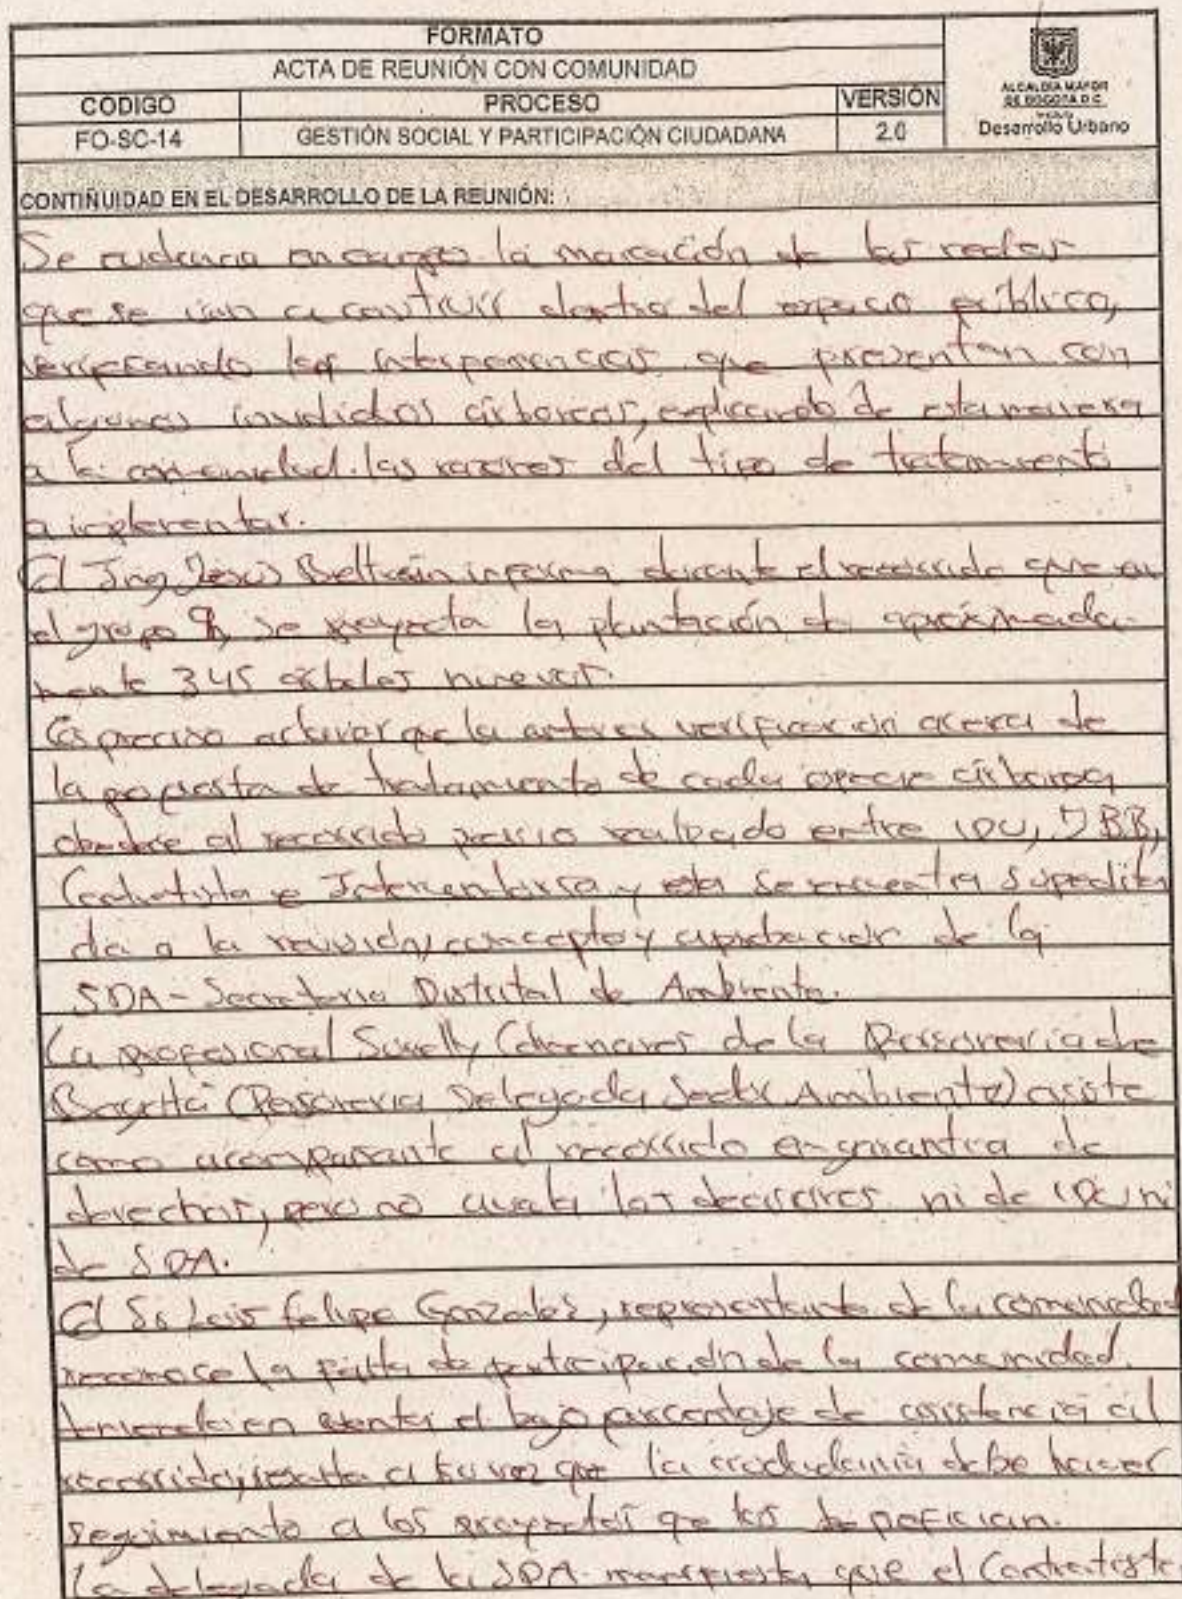 FORMATO
ACTA DE REUNIÓN CON COMUNIDAD
CODIGO PROCESO VERSIÓN
FO-SC-14 GESTIÓN SOCIAL Y PARTICIPACIÓN CIUDADANA 2.0
ALCALDIA MAYOR
DE BOGOTA D.C.
Instituto
Desarrollo Urbano
CONTIÑUIDAD EN EL DESARROLLO DE LA REUNIÓN:
Se evidencia en campo la marcación de las redes
que se van a construir dentro del espacio público,
verificando las interferencias que presentan con
algunos individuos arboreos, explicando de esta manera
a la comunidad las razones del tipo de tratamiento
a implementar.
El Ing Jesús Beltrán informa durante el recorrido que en
el grupo se proyecta la plantación de aproximada-
mente 345 árboles nuevos.
Es preciso aclarar que la anterior verificación acerca de
la propuesta de tratamiento de cada especie arborea
obedece al recorrido previo realizado entre IDU, JBB,
Contratista e Interventoria y esta se encuentra supedita
da a la revisión, concepto y aprobación de la
SDA - Secretaria Distrital de Ambiente.
La profesional Colmenares de la Personería de
Bogotá (Personeria Delegada Sector Ambiente) asiste
como acompañante al recorrido en garantia de
derechos, pero no avala las decisiones ni de IDU ni
de SDA.
El Sr Luis Felipe Gonzalez, representante de la comunidad
reconoce la falta de participación de la comunidad
teniendo en cuenta el bajo porcentaje de asistencia al
recorrido, resalta a su vez que la ciudadanía debe hacer
seguimiento a los proyectos que los benefician.
La delegada de la SDA manifiesta que el Contratista